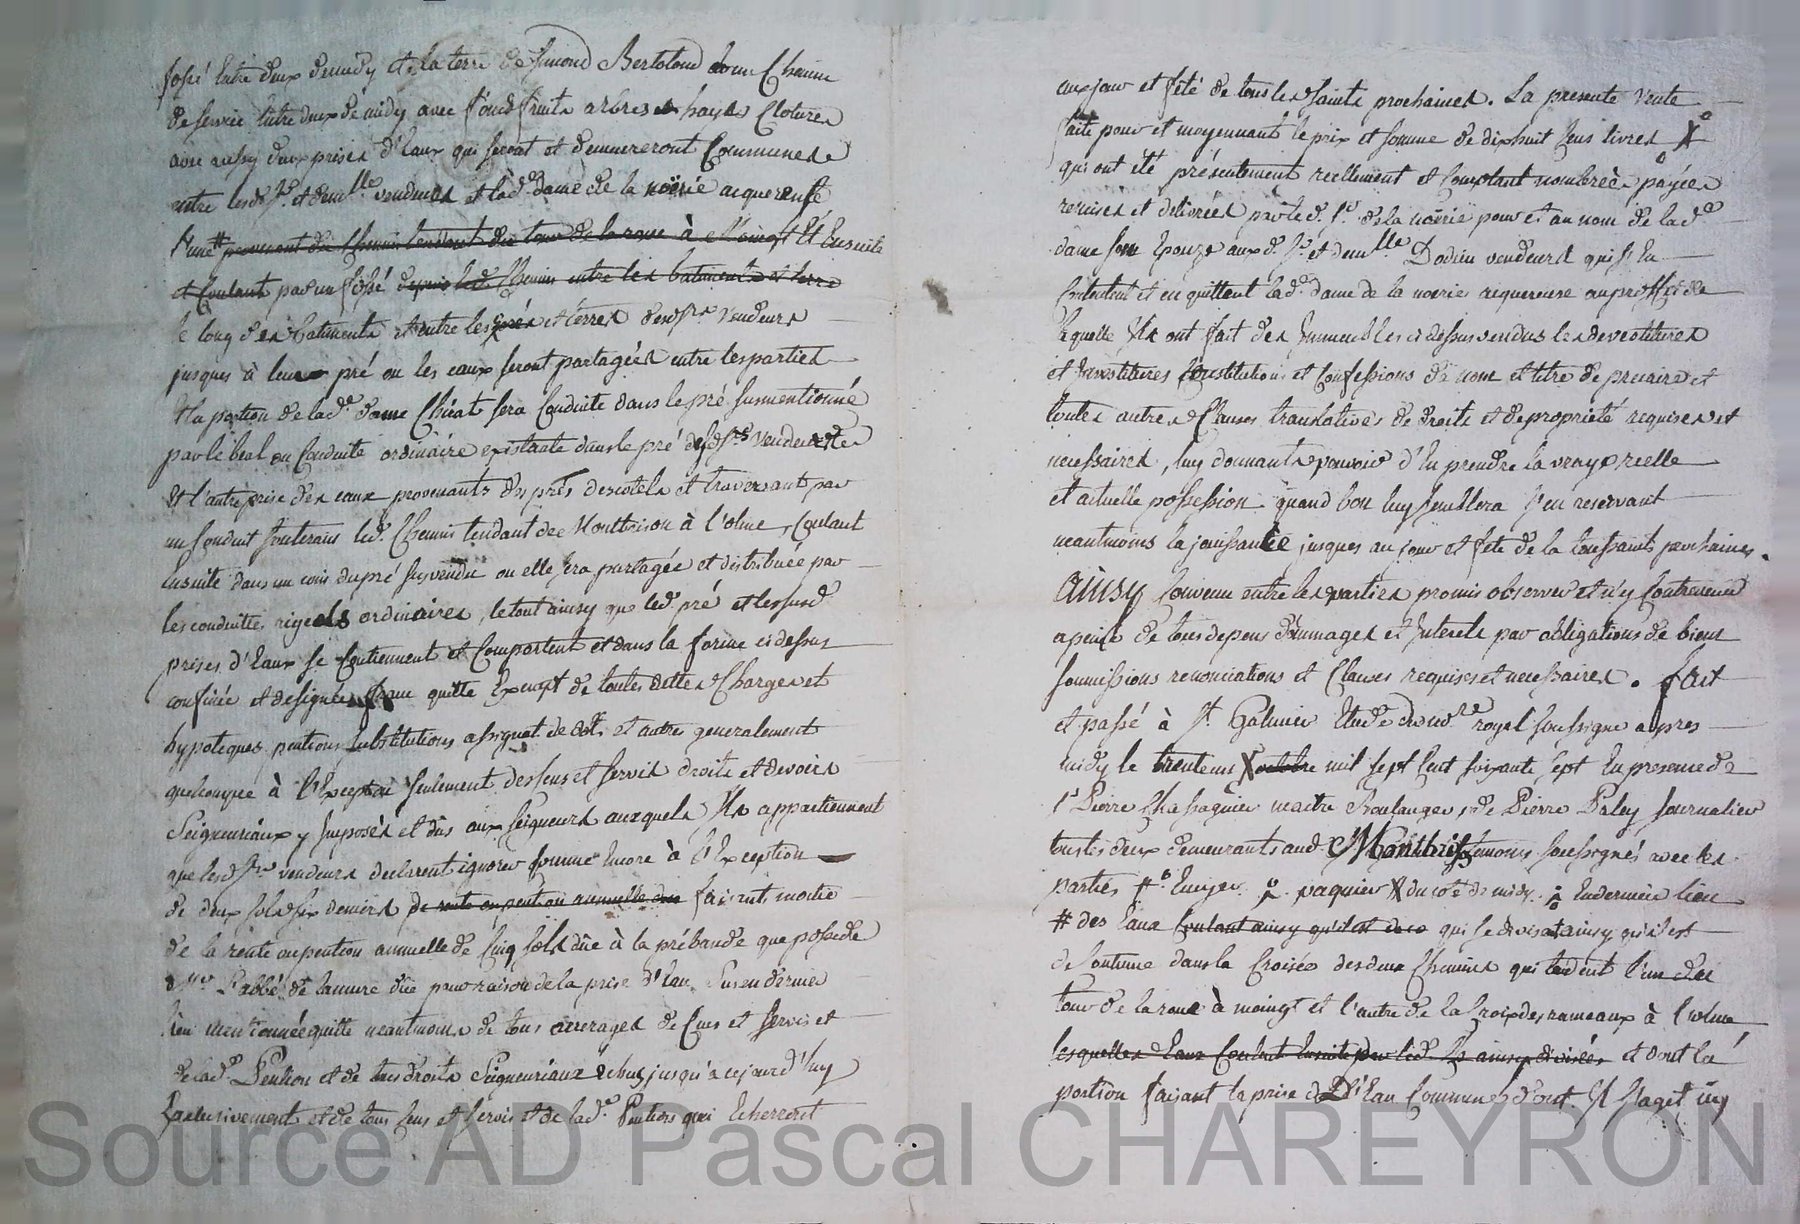 fossé entre deux de midy et la terre de Simond Bertolond du un Chemin
de service entre deux de midy avec fonds fruits arbres hayes Clotures
avec aussy deux prises d'Eaux qui seront et demeureront Communes
entre lesd. Sr. et demlle vendeurs et lad.e dame de la noërie acquereuse
l'une # provenant du Chemin tendant du tour de la roue à Moingt Et Ensuite
et Coulant par un fossé depuis led. Chemin entre les batiments et terre
le long des batiments et entre les prés et terres desd. Srs vendeurs
jusques à leur pré ou les eaux seront partagées entre les parties
et la portion de lad.e dame Chirat sera Conduite dans le pré susmentionné
par le béal ou Conduite ordinaire existante dans le pré desd. Srs vendeurs
Et l'autre prise des eaux provenants des prés descotels et traversant par
un Conduit souterain led. Chemin tendant de Montbrison à l'olme, Coulant
Ensuite dans un coin du pré susvendu ou elle sera partagée et distribuée par
les conduittes rigeols ordinaires, le tout ainsy que led. pré et lesusd.
prises d'Eaux se Contiennent et Comportent et dans la forme cidessus
confinée et designée, franc quitte Exempt de toutes dettes Charges et
hypoteques pentions substitutions assignat de dot, et autres generalement
quelconques à l'Exception seulement des sens et servis droits et devoirs
Seigneuriaux y Imposés et dûs aux seigneurs auxquels Ils appartiennent
que lesd. Srs vendeurs declarent ignorer somme Encore à l'Exception
de deux sols six deniers de rente ou pention annuelle due faisants moitié
de la rente ou pention annuelle de Cinq sols dûe à la prébande que possede
Mr. l'abbé de lamure dûe pour raison de la prise d'Eau Susen dernier
lieu mentionnée quitte neantmoins de tous arrerages de Cens et servis et
de lad.e Pention et de tous droits Seigneuriaux Echus jusqu'a cejourd'huy
Exclusivement et de tous sens et servis et de lad.e Pention qui Echerront
aux jour et fête de tous les saints prochaines. La presente vente
faite pour et moyennant le prix et somme de dixhuit Cens livres X
qui ont été présentement reellement et Comptant nombrées payées
remises et delivrées par led. Sr. de la noërie pour et au nom de lad.e
dame son Epouze aux d. Sr. et demlle Dodieu vendeurs qui s'en
Contentent et en quittent lad.e dame de la noerie acquereuse au proffit de
laquelle Ils ont fait des Immeubles cidessus vendus les devestitures
et Investitures Constitutions et Confessions de nom et titre de precaire et
toutes autres Clauses translatives de droits et de propriété requises et
necessaires, luy donnants pouvoir d'En prendre la vraye reelle
et actuelle possession quand bon luy semblera s'en reservant
neantmoins la jouissance jusques au jour et fete de la toussaints prochaines.
Ainsy Convenu entre les parties promis observer et n'y Contrevenir
a peine de tous depens dommages et Interets par obligations de biens
soumissions renonciations et Clauses requises et necessaires. fait
et passé à St. Galmier Etude du no.re royal soussigné apres
midy le trente un X octobre mil sept Cent soixante sept En presence de
Sr Pierre Chassagnier maitre Boulanger, de Pierre Paley Journalier
tous les deux demeurants aud. Montbrison temoins soussignés avec les
parties #o. Ecuyer o paquier X du coté de midy. Endernier lieu
# des Eaux Coulant ainsy qu'il est dece qui se divisent ainsy qu'il est
de Coutume dans la Croisée des deux Chemins qui tendent l'un du
tour de la roue à moingt et l'autre de la Croix des rameaux à l'olme
lesquelles Eaux Coulent Ensuite par led. Ch ainsy divisées et dont la
portion faisant la prise d'Eau Commune dont Il s'agit icy